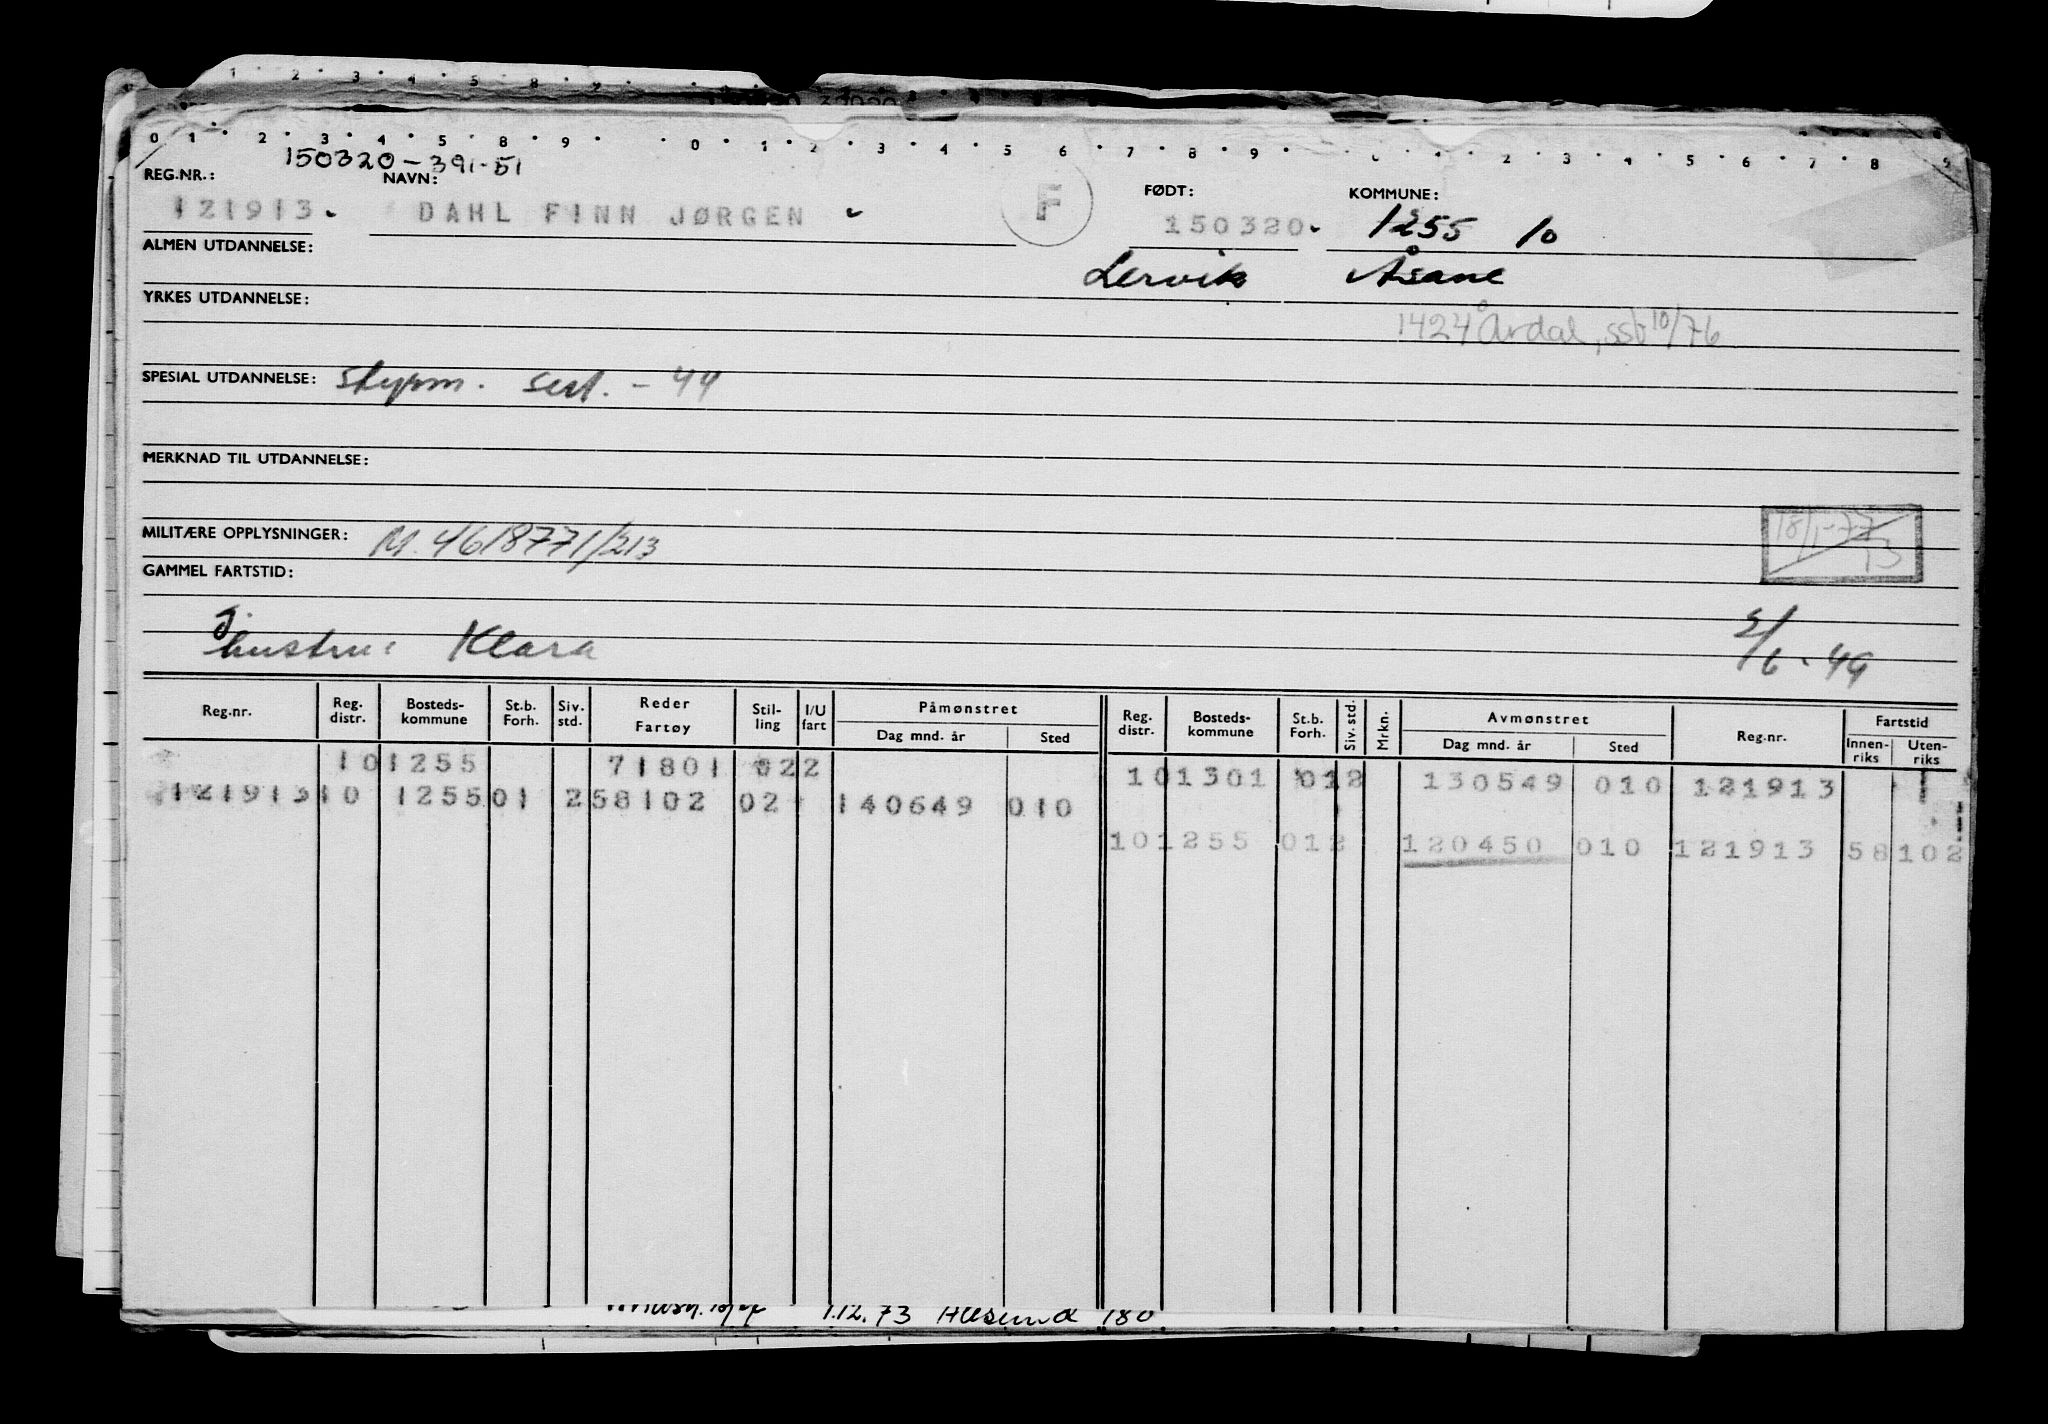 1 · 2 · 3 · 4 · 5 · 8 · 9
0 1 · 2 · 3 · 4 · 5 · 8 · 9 · · 0 · 1 · 2 · 3 · 4 · 5 · 6 · 7 · 8 · 9 · · 0 · 1 · 2 · 3 · 4 · 5 · 6 · 7 · 8 · 9
150320-391-51
REG.NR.: NAVN: FØDT: KOMMUNE:
121913 DAHL FINN JØRGEN F 150320 1255 10
ALMEN UTDANNELSE:
Lervik Åsane
YRKES UTDANNELSE:
1424 Årdal, ssb 10/76
SPESIAL UTDANNELSE: styrm. sert. - 44
MERKNAD TIL UTDANNELSE:
18/1-77
13
MILITÆRE OPPLYSNINGER: M. 4618771/213
GAMMEL FARTSTID:
hustru: Klara 2/6-49
Reg.nr. Reg. distr. Bosteds-kommune St.b. Forh. Siv. std. Reder Fartøy Stil-ling I/U fart Påmønstret Dag mnd. år Sted Reg. distr. Bosteds-kommune St.b. Forh. Siv. std. Mrkn. Avmønstret Dag mnd. år Sted Reg.nr. Fartstid Innen-riks Uten-riks
101255 71801 022 101301 012 130549 010 121913
121913 10 1255 01 2 58102 02 140649 010
101255 012 120450 010 121913 58102
1.12.73 Ålesund 180